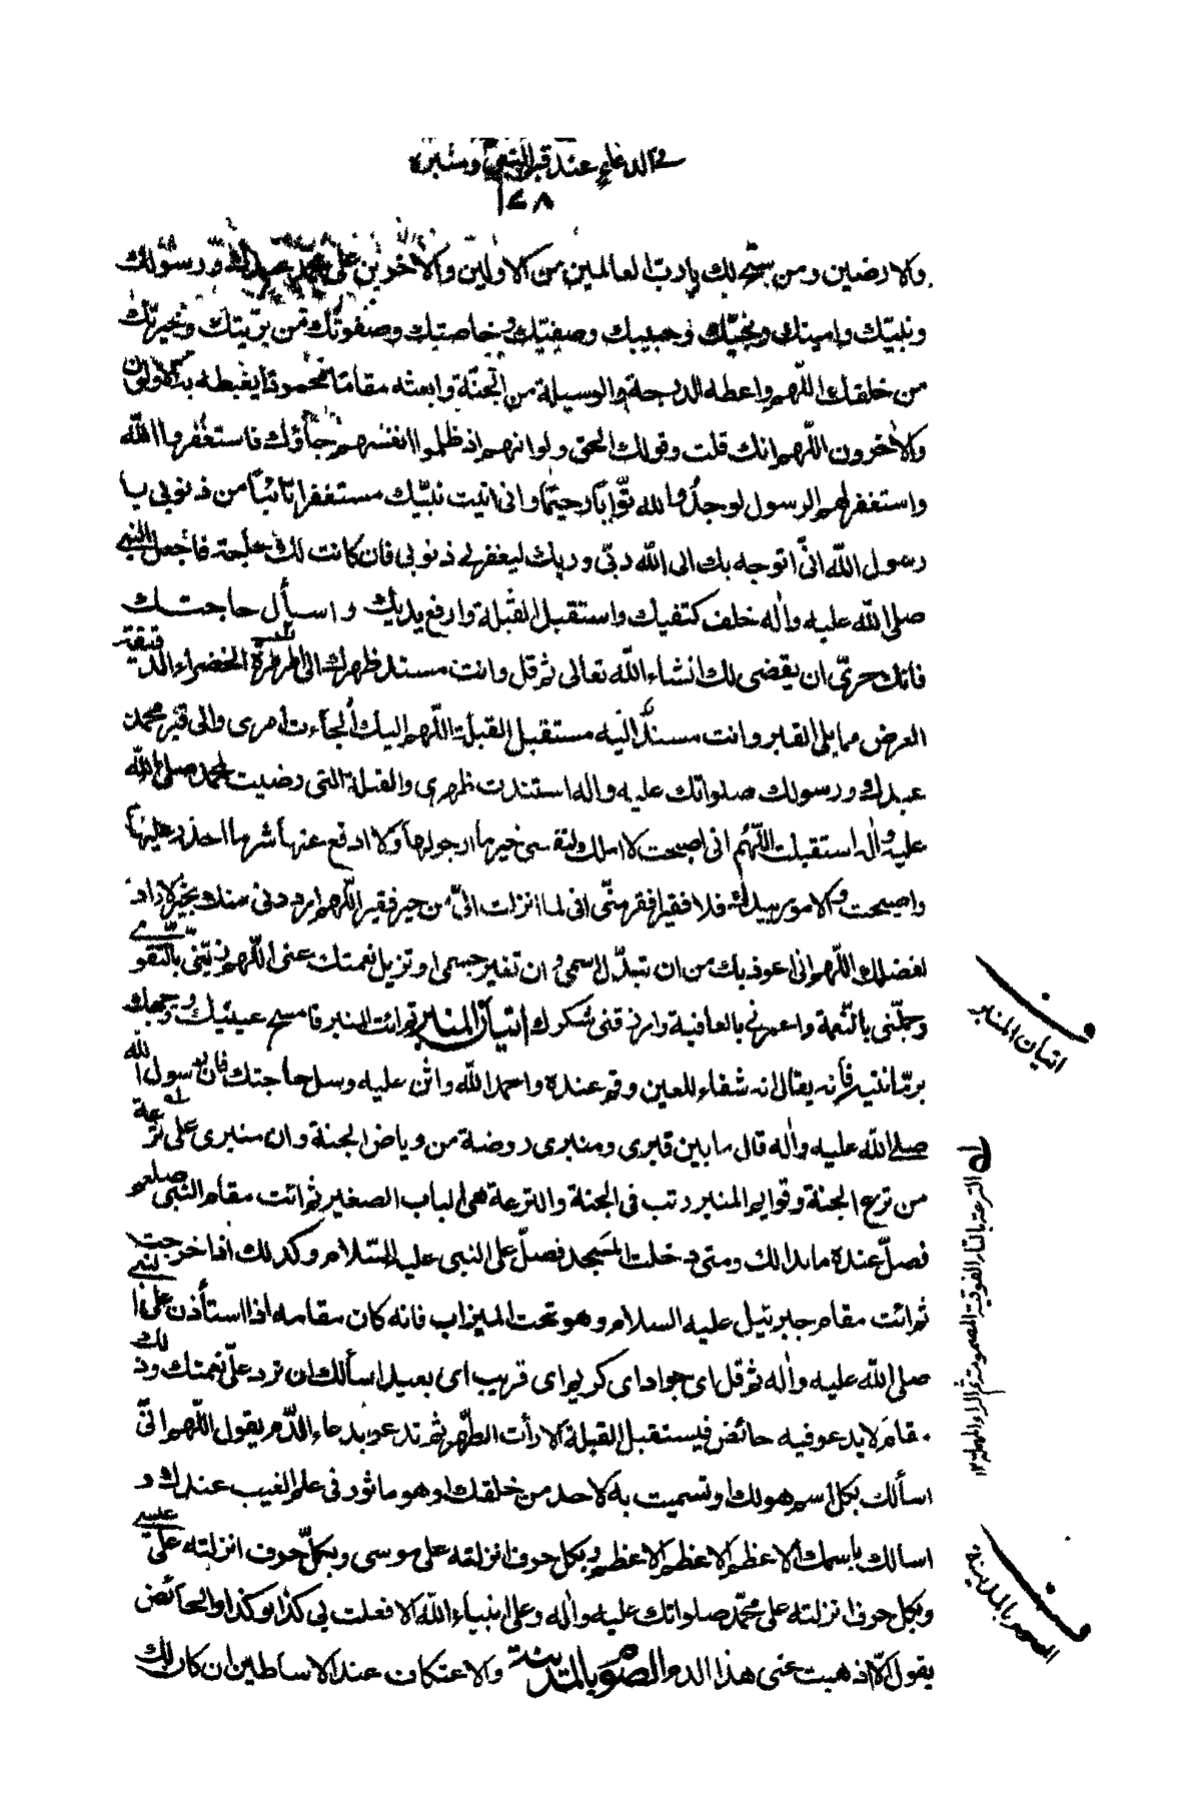 في الدعاء عند قبر النبي ومنبره
١٤٨
والارضين ومن سبّح لك يا ربّ العالمين من الاولين والاخرين على محمّد عبدك ورسولك
ونبيّك وامينك ونجيّك وحبيبك وصفيّك وخاصتك وصفوتك من بريّتك وخيرتك
من خلقك اللّهم واعطه الدرجة والوسيلة من الجنّة وابعثه مقاما محمودا يغبطه به الاولون
والاخرون اللّهم انك قلت وقولك الحق ولو انهم اذ ظلموا انفسهم جآؤك فاستغفروا اللّه
واستغفر لهم الرسول لوجدوا الله توّابا رحيما وانى اتيت نبيّك مستغفرا تائبا من ذنوبي يا
رسول اللّه انّي اتوجه بك الى اللّه ربّى وربك ليغفر لى ذنوبى فان كانت لك حاجة فاجعل النبي
صلى اللّه عليه واله خلف كتفيك واستقبل القبلة وارفع يديك واسأل حاجتك
فانك حرىّ ان يقضى لك انشاء اللّه تعالى ثم قل وانت مسند ظهرك الى المرمرة الخضراء الدقيقة
العرض مما يلى القبر وانت مسند اليه مستقبل القبلة اللّهم اليك الجأءت امرى والى قبر محمد
عبدك ورسولك صلواتك عليه واله استندت ظهرى والقبلة التى رضيت لمحمد صلى اللّه
عليه واله استقبلت اللّهم انى اصبحت لا املك لنفسى خير ما ارجو لها ولا ادفع عنها شر ما احذر عليها
واصبحت الامور بيدك فلا فقير افقر منّى انى لما انزلت الىّ من خير فقير اللّهم ارددنى منك بخير لا راد
لفضلك اللّهم انى اعوذ بك من ان تبدّل اسمى وان تغير جسمى او تزيل نعمتك عنى اللّهم زيّنّى بالتقوى
وجمّلنى بالنّعمة واعمرنى بالعافية وارزقنى شكرك اتيان المنبر ثم ائت المنبر فامسح عينيك ووجهك
برمّانتيه فأنه يقال انه شفاء للعين وقم عنده واحمد اللّه واثن عليه وسل حاجتك فان رسول اللّه
صلى اللّه عليه واله قال ما بين قبرى ومنبرى روضة من رياض الجنة وان منبرى على ترعة
من ترع الجنة وقوايم المنبر رتب فى الجنة والترعة هى الباب الصغير ثم ائت مقام النّبى صلعم
فصلّ عنده ما بدا لك ومتى دخلت المسجد فصلّ على النبى عليه السّلام وكذلك اذا خرجت
ثم ائت مقام جبرئيل عليه السلام وهو تحت الميزاب فانه كان مقامه اذا استأذن على النبى
صلى اللّه عليه واله ثم قل اى جواد اى كريم اى قريب اى بعيد اسألك ان ترد علىّ نعمتك وذلك
مقام لا يدعو فيه حائض فيستقبل القبلة الا رأت الطّهر ثم تدعو بدعاء الدّم يقول اللّهم انّى
اسألك بكل اسم هو لك او تسميت به لاحد من خلقك او هو ماثور فى علم الغيب عندك و
اسالك باسمك الاعظم الاعظم الاعظم وبكل حرف انزلته على موسى وبكلّ حرف انزلته على عيسى
وبكل حرف انزلته على محمّد صلواتك عليه واله وعلى انبياء اللّه الا فعلت بى كذا وكذا والحائض
يقول الّا اذهبت عنى هذا الدم الصوم بالمدينة والاعتكاف عند الاساطين ان كان لك
ف
اتيان المنبر
له الترعة بالتاء الفوقية المضمومة ثم الراء المهملة ١٢
ف
الصوم بالمدينة